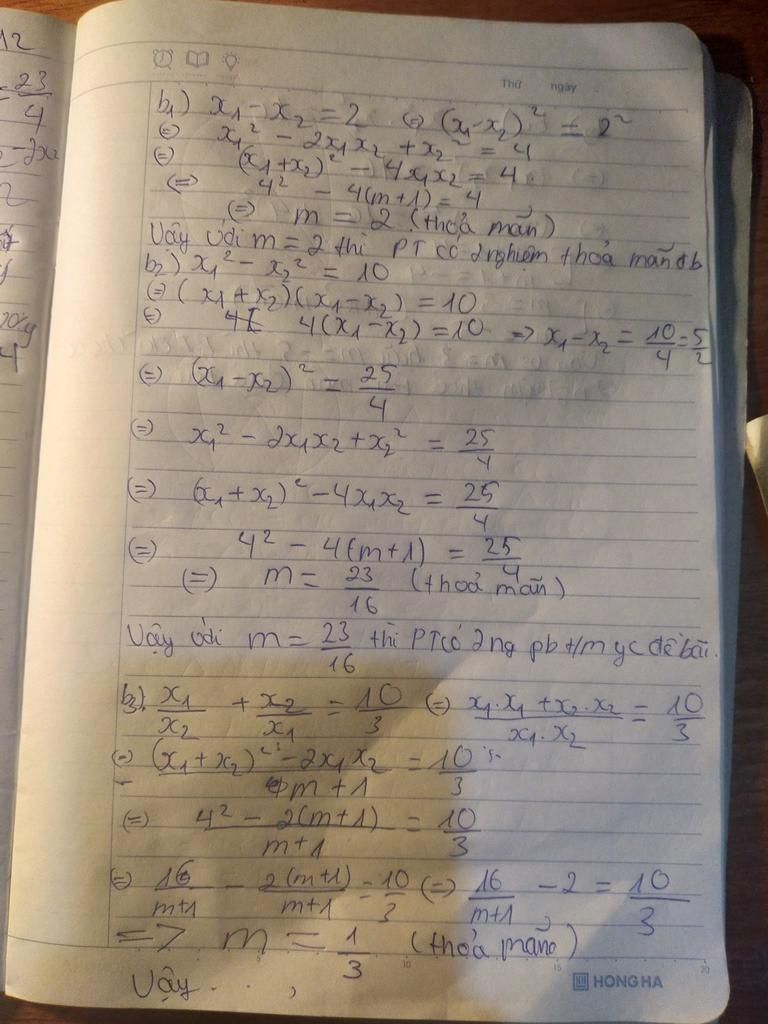 12
= 23/4
Thứ ngày
b1) x1 - x2 = 2 (=) (x1-x2)² = 2²
(=) x1² - 2x1x2 + x2² = 4
(=) (x1+x2)² - 4x1x2 = 4
(=) 4² - 4(m+1) = 4
(=) m = 2 (thoả mãn)
Vậy với m = 2 thì PT có 2 nghiệm thoả mãn đb
b2) x1² - x2² = 10
(=) (x1+x2)(x1-x2) = 10
(=) 4(x1-x2) = 10 => x1-x2 = 10/4 = 5/2
(=) (x1-x2)² = 25/4
(=) x1² - 2x1x2 + x2² = 25/4
(=) (x1+x2)² - 4x1x2 = 25/4
(=) 4² - 4(m+1) = 25/4
(=) m = 23/16 (thoả mãn)
Vậy với m = 23/16 thì PT có 2 ng pb t/m yc đề bài.
b3) x1/x2 + x2/x1 = 10/3 (=) (x1.x1 + x2.x2)/(x1.x2) = 10/3
(=) ((x1+x2)² - 2x1x2)/(m+1) = 10/3
(=) (4² - 2(m+1))/(m+1) = 10/3
(=) 16/(m+1) - 2(m+1)/(m+1) = 10/3 (=) 16/(m+1) - 2 = 10/3
=> m = 1/3 (thoả mãn)
Vậy...,
HONG HA